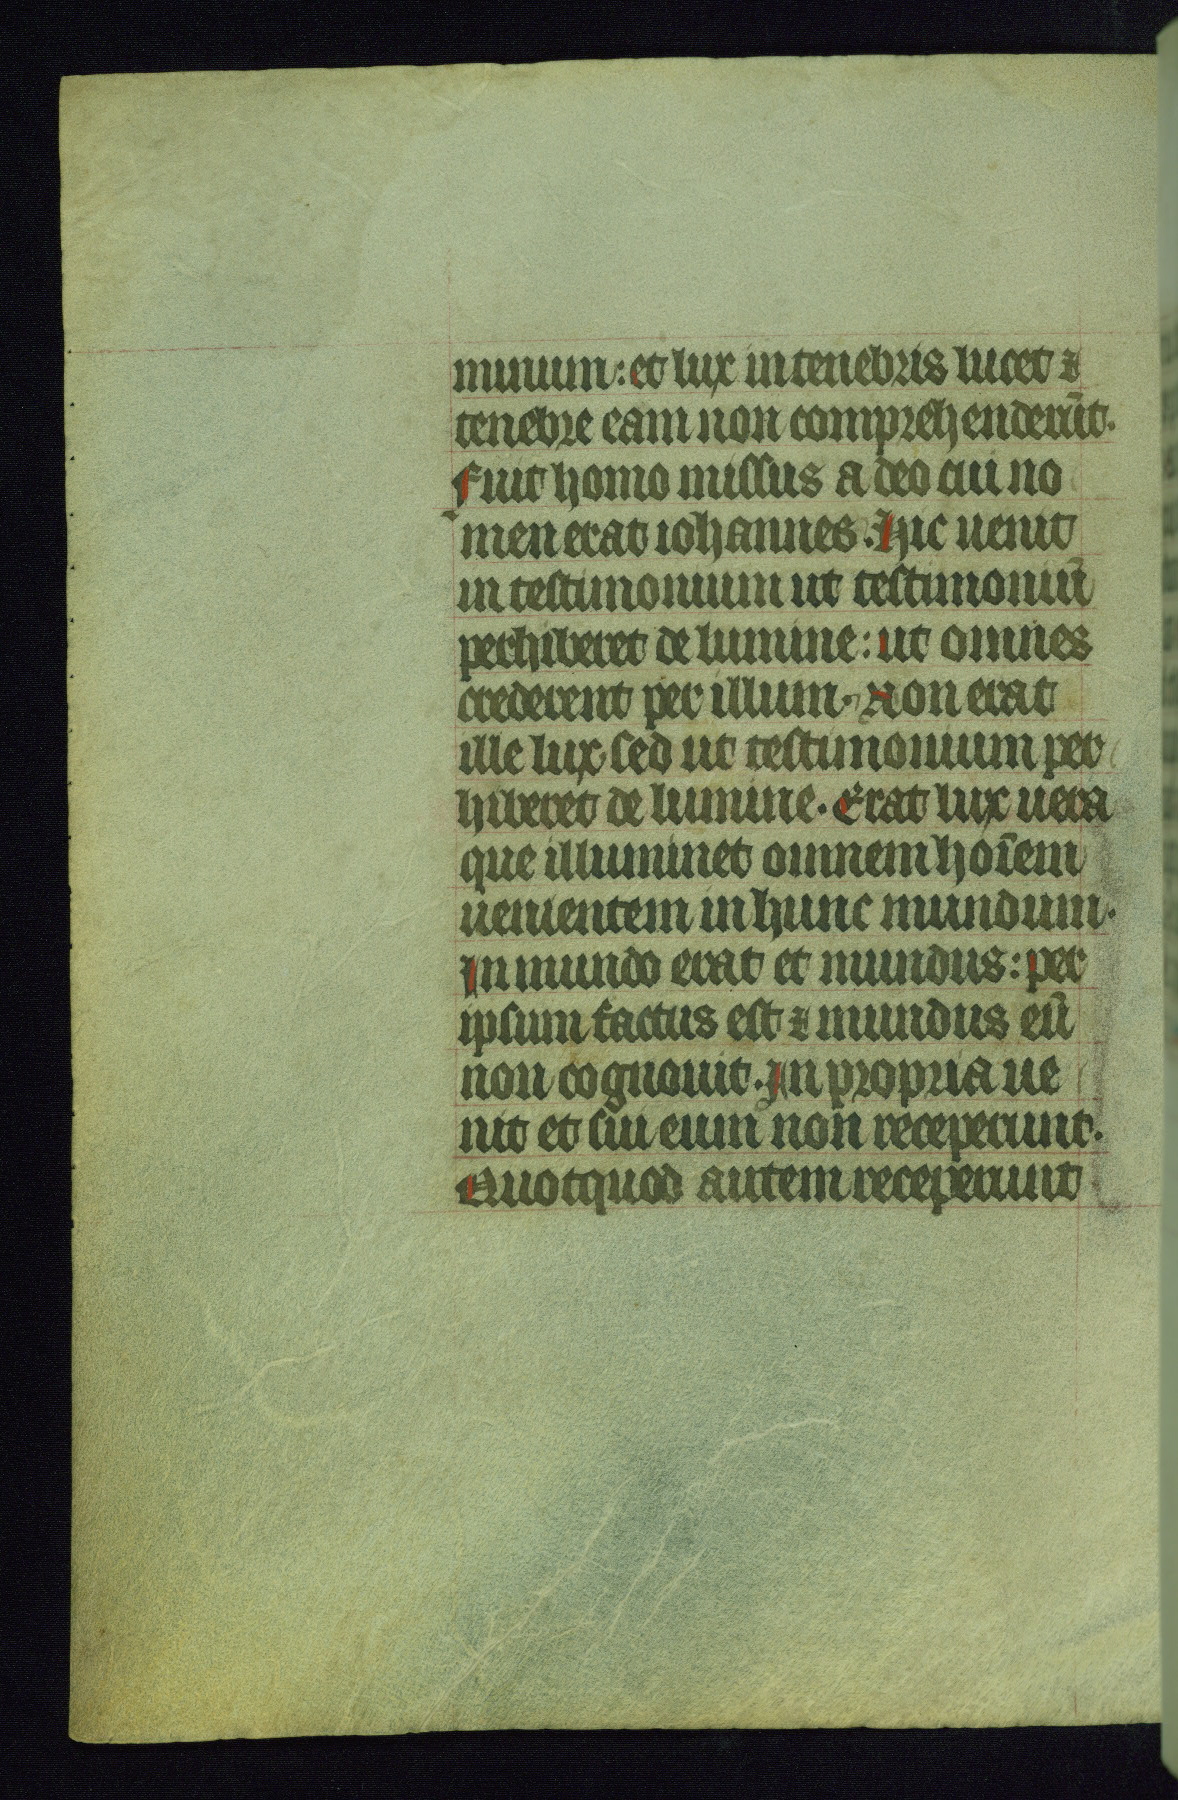 minum: et lux in tenebris lucet ⁊
tenebre eam non comprehenderūt.
Fuit homo missus a deo cui no
men erat iohannes. Hic uenit
in testimonium ut testimoniū
perhiberet de lumine: ut omnes
crederent per illum. Non erat
ille lux sed ut testimonium per
hiberet de lumine. Erat lux uera
que illuminet omnem hoīem
uenientem in hunc mundum.
In mundo erat et mundus: per
ipsum factus est ⁊ mundus eū
non cognouit. In propria ue
nit et sui eum non receperunt.
Quotquod autem receperunt